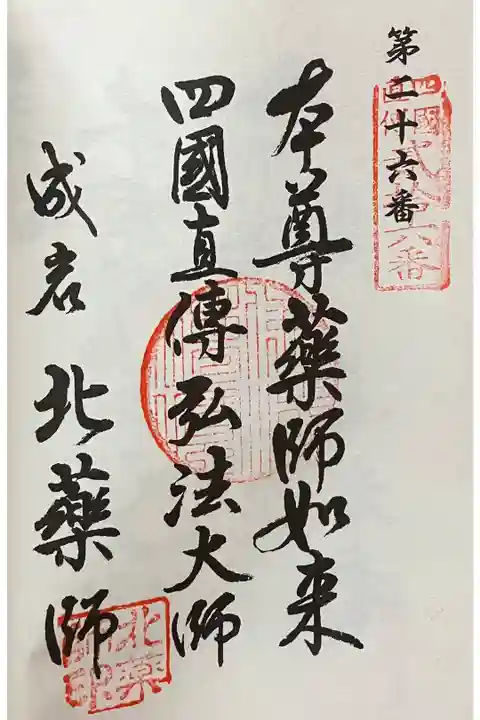 第二十六番
四國
直傳
弐拾六番
本尊薬師如来
四國直傳弘法大師
成岩 北薬師
北薬
師